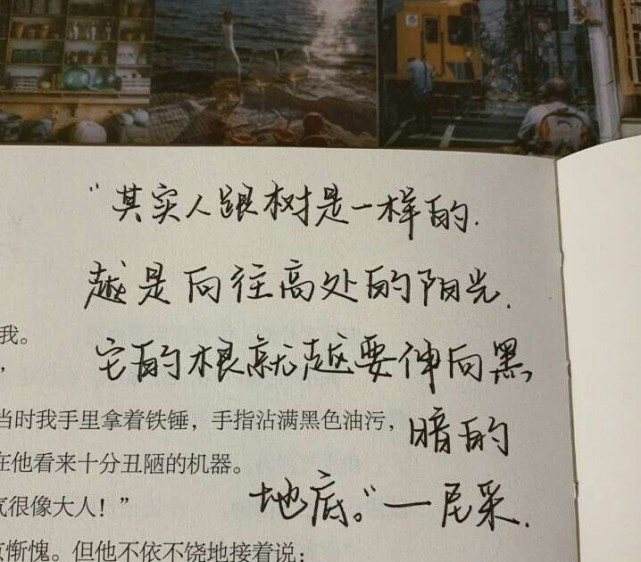 "其实人跟树是一样的.
越是向往高处的阳光.
它的根就越要伸向黑
暗的
地底。"—尼采.
我。
,
当时我手里拿着铁锤，手指沾满黑色油污，
在他看来十分丑陋的机器。
气很像大人！”
惭愧。但他不依不饶地接着说：